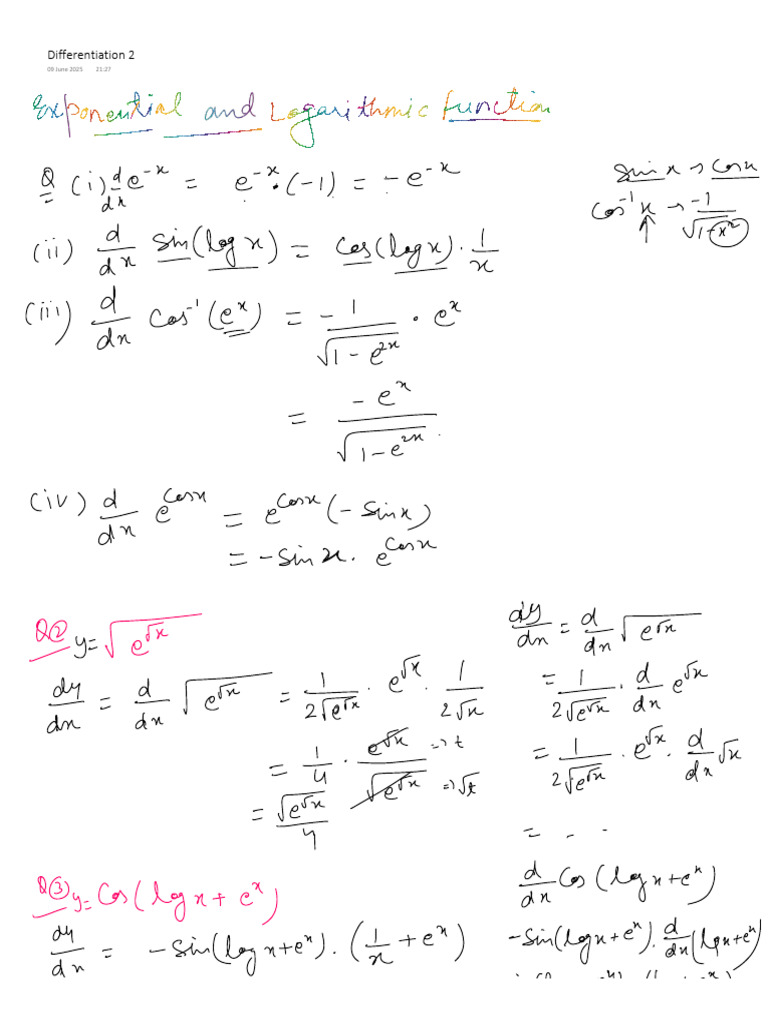 Differentiation 2
09 June 2025 21:27
Exponential and Logarithmic function
Q (i) d/dx e^-x = e^-x · (-1) = -e^-x
sinx → cosx
cos^-1 x → -1/√(1-x^2)
(ii) d/dx sin(logx) = cos(logx) · 1/x
(iii) d/dx cos^-1(e^x) = -1/√(1-e^2x) · e^x
= -e^x/√(1-e^2x)
(iv) d/dx e^cosx = e^cosx (-sinx)
= -sinx · e^cosx
Q② y = √(e^√x)
dy/dx = d/dx √(e^√x) = 1/(2√(e^√x)) · e^√x · 1/(2√x)
= 1/4 · e^√x/√(e^√x) => t => √t
= √(e^√x)/4
dy/dx = d/dx √(e^√x)
= 1/(2√(e^√x)) · d/dx e^√x
= 1/(2√(e^√x)) · e^√x · d/dx √x
= . .
Q③ y = cos(logx + e^x)
dy/dx = -sin(logx+e^x) · (1/x + e^x)
d/dx cos(logx+e^x)
-sin(logx+e^x) · d/dx (logx+e^x)